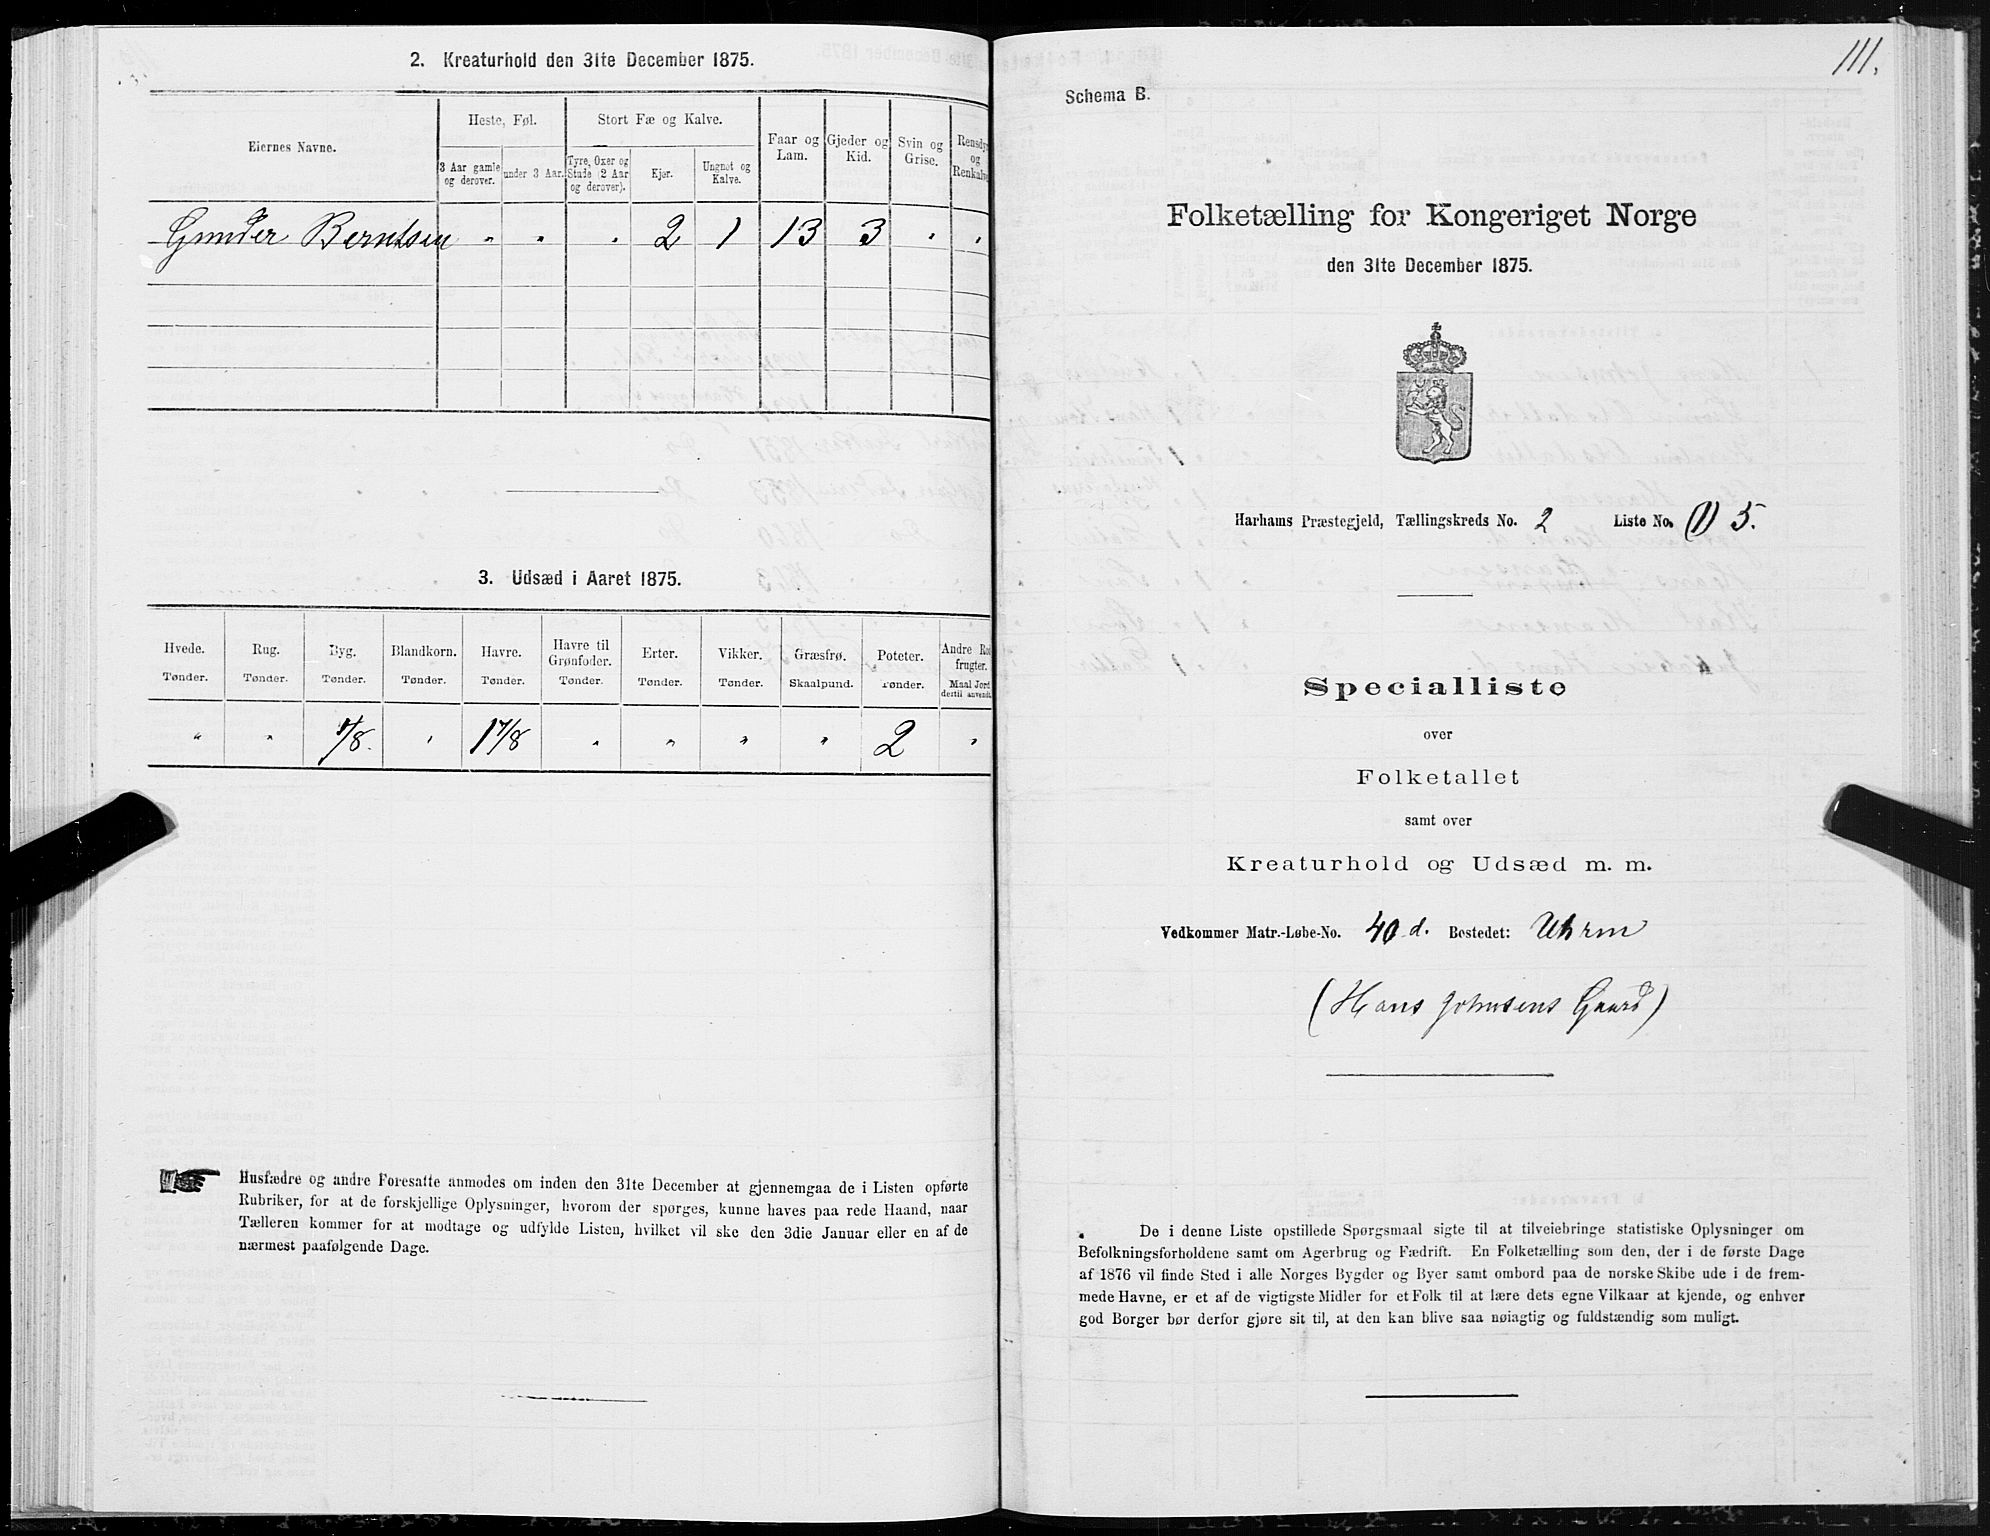 2. Kreaturhold den 31te December 1875.
Eiernes Navne.
Heste, Føl.
Stort Fæ og Kalve.
Faar og Lam.
Gjeder og Kid.
Svin og Grise.
Rensdyr og Renkalve
3 Aar gamle og derover.
under 3 Aar.
Tyre, Oxer og Stude (2 Aar og derover).
Kjør.
Ungnøt og Kalve.
Gunder Berntsen " " " 2 1 13 3 " "
3. Udsæd i Aaret 1875.
Hvede. Rug. Byg. Blandkorn. Havre. Havre til Grønfoder. Erter. Vikker. Græsfrø. Poteter. Andre Rodfrugter.
Tønder. Tønder. Tønder. Tønder. Tønder. Tønder. Tønder. Tønder. Skaalpund. Tønder. Maal Jord dertil anvendt
" " 1/8. " 1 7/8 " " " " 2 "
Husfædre og andre Foresatte anmodes om inden den 31te December at gjennemgaa de i Listen opførte
Rubriker, for at de forskjellige Oplysninger, hvorom der spørges, kunne haves paa rede Haand, naar
Tælleren kommer for at modtage og udfylde Listen, hvilket vil ske den 3die Januar eller en af de
nærmest paafølgende Dage.
111.
Schema B.
Folketælling for Kongeriget Norge
den 31te December 1875.
Harhams Præstegjeld, Tællingskreds No. 2 Liste No. (1) 5.
Specialliste
over
Folketallet
samt over
Kreaturhold og Udsæd m. m.
Vedkommer Matr.-Løbe-No. 40 d. Bostedet: Uhrm
(Hans Johnsens Gaard)
De i denne Liste opstillede Spørgsmaal sigte til at tilveiebringe statistiske Oplysninger om
Befolkningsforholdene samt om Agerbrug og Fædrift. En Folketælling som den, der i de første Dage
af 1876 vil finde Sted i alle Norges Bygder og Byer samt ombord paa de norske Skibe ude i de frem-
mede Havne, er et af de vigtigste Midler for et Folk til at lære dets egne Vilkaar at kjende, og enhver
god Borger bør derfor gjøre sit til, at den kan blive saa nøiagtig og fuldstændig som muligt.